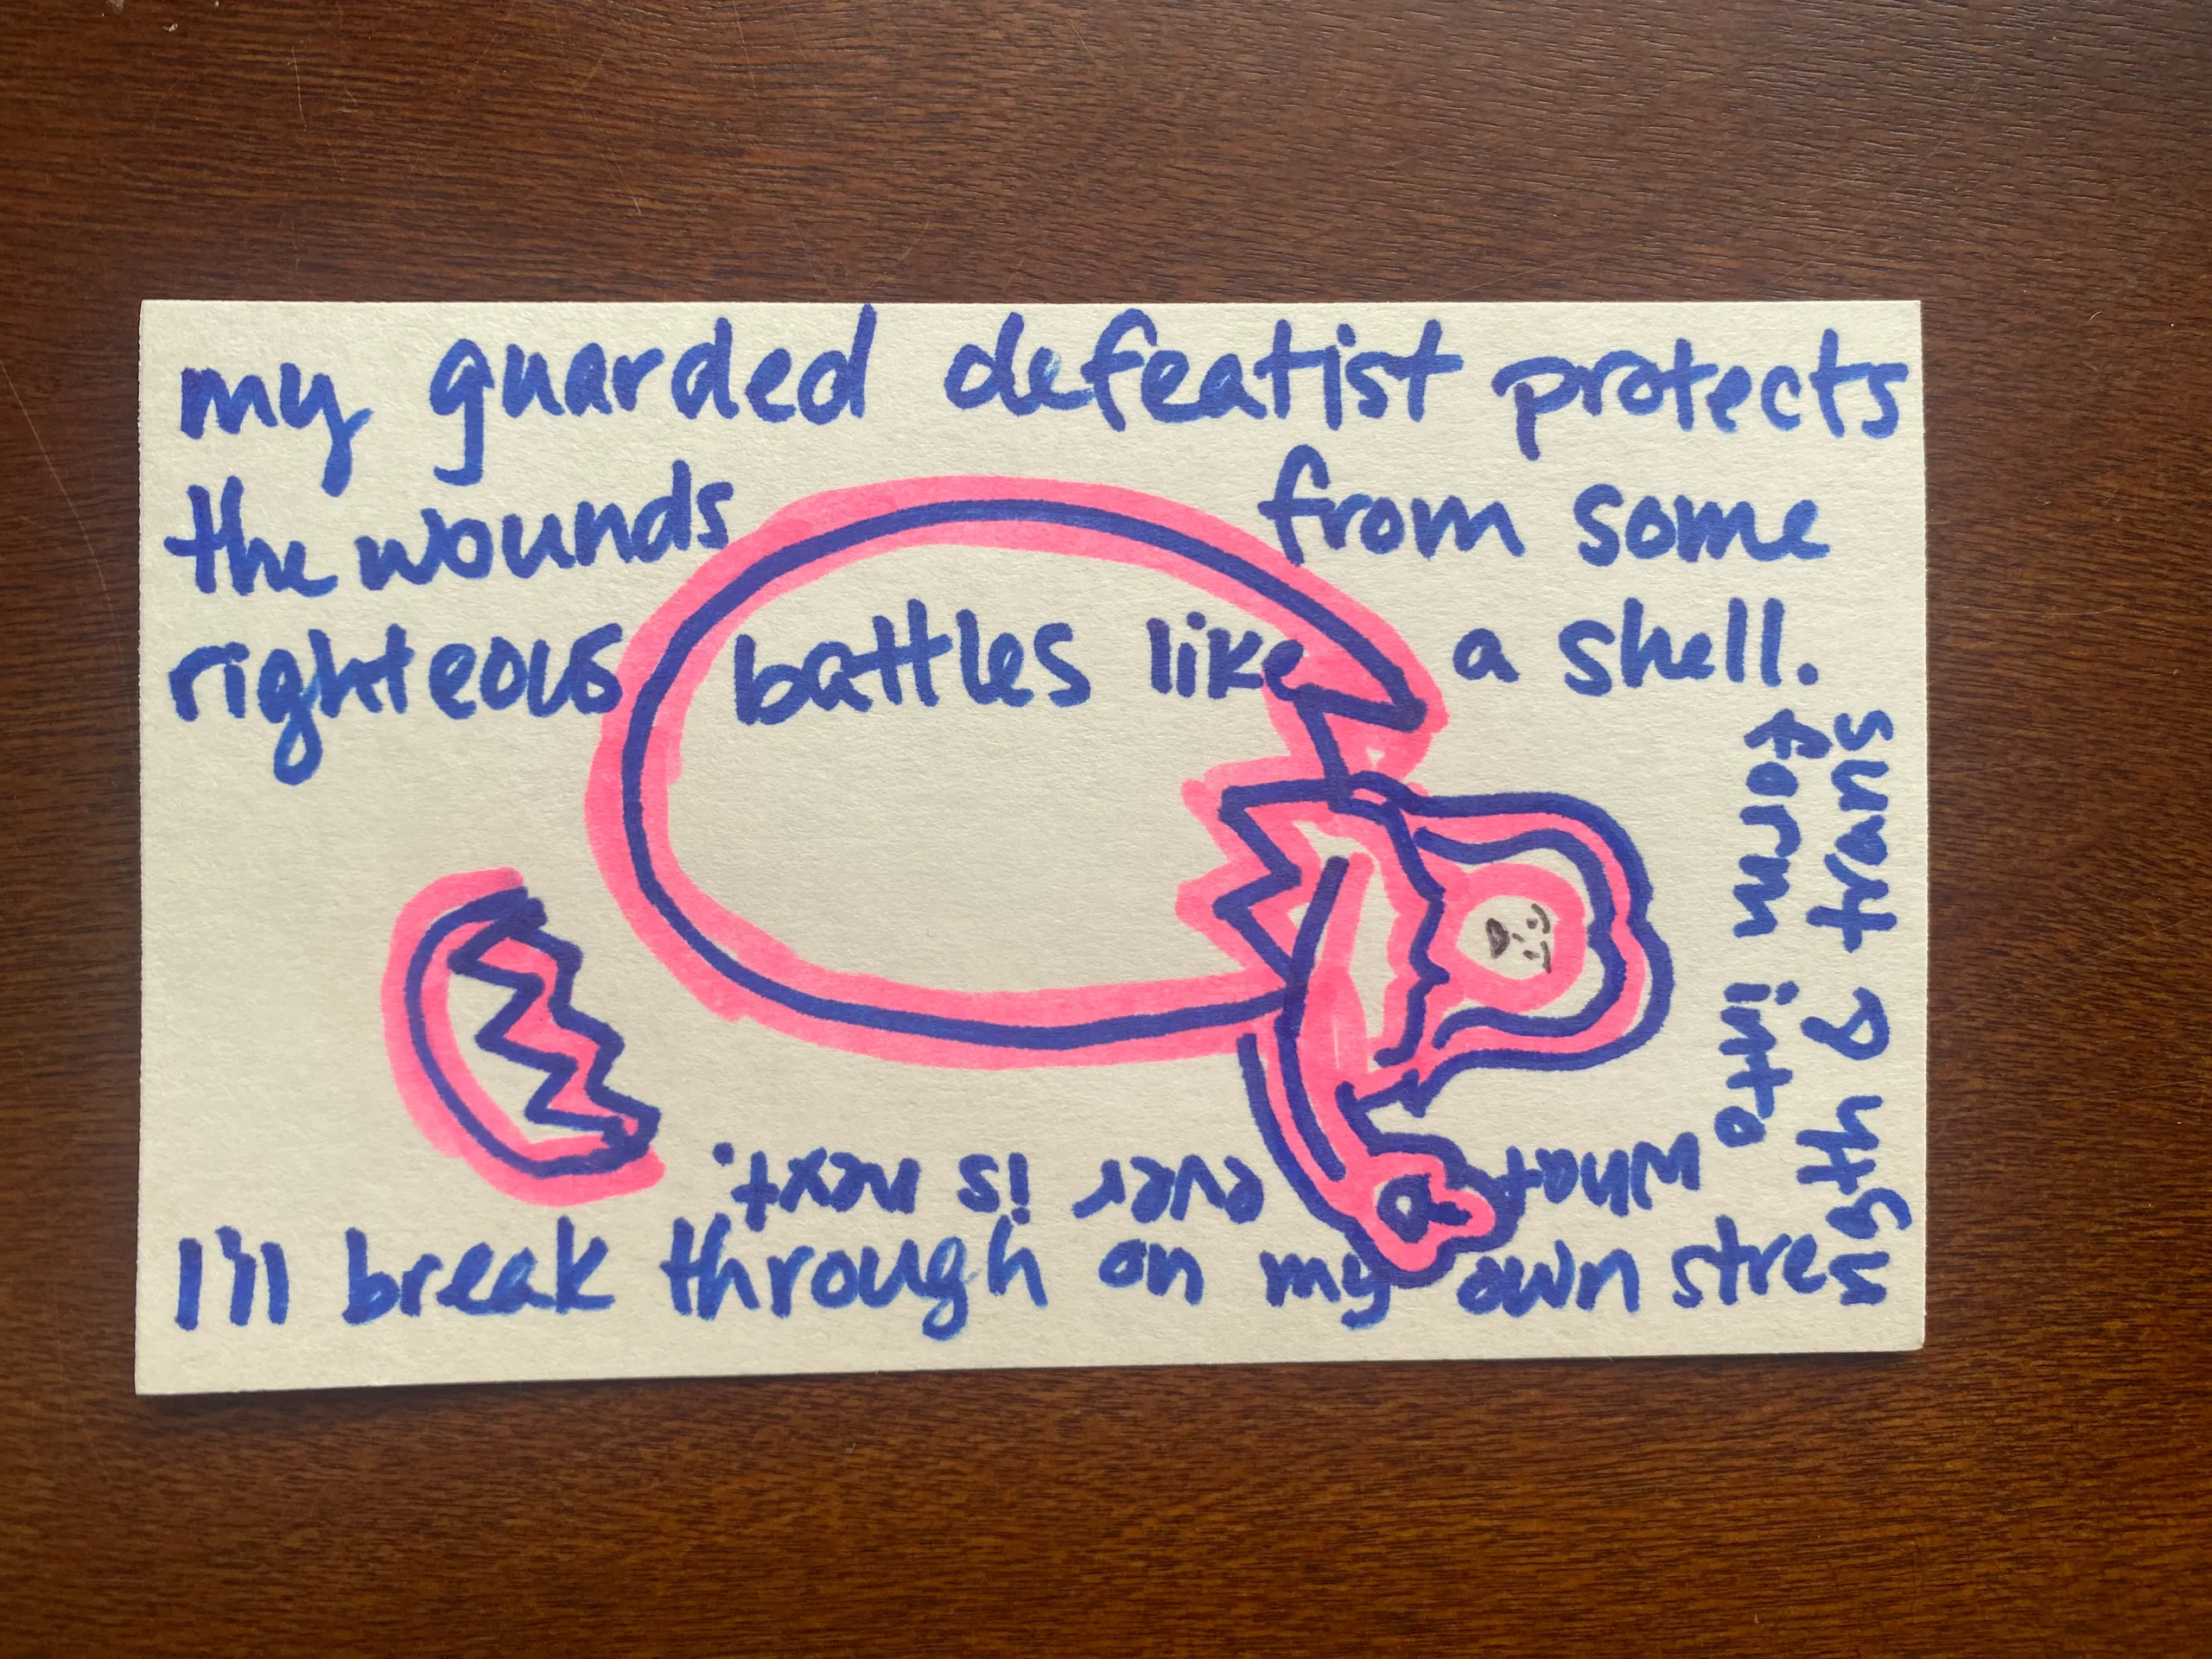 my guarded defeatist protects
the wounds from some
righteous battles like a shell.
I'll break through on my own stre
ngth & trans
form into
what ever is next.